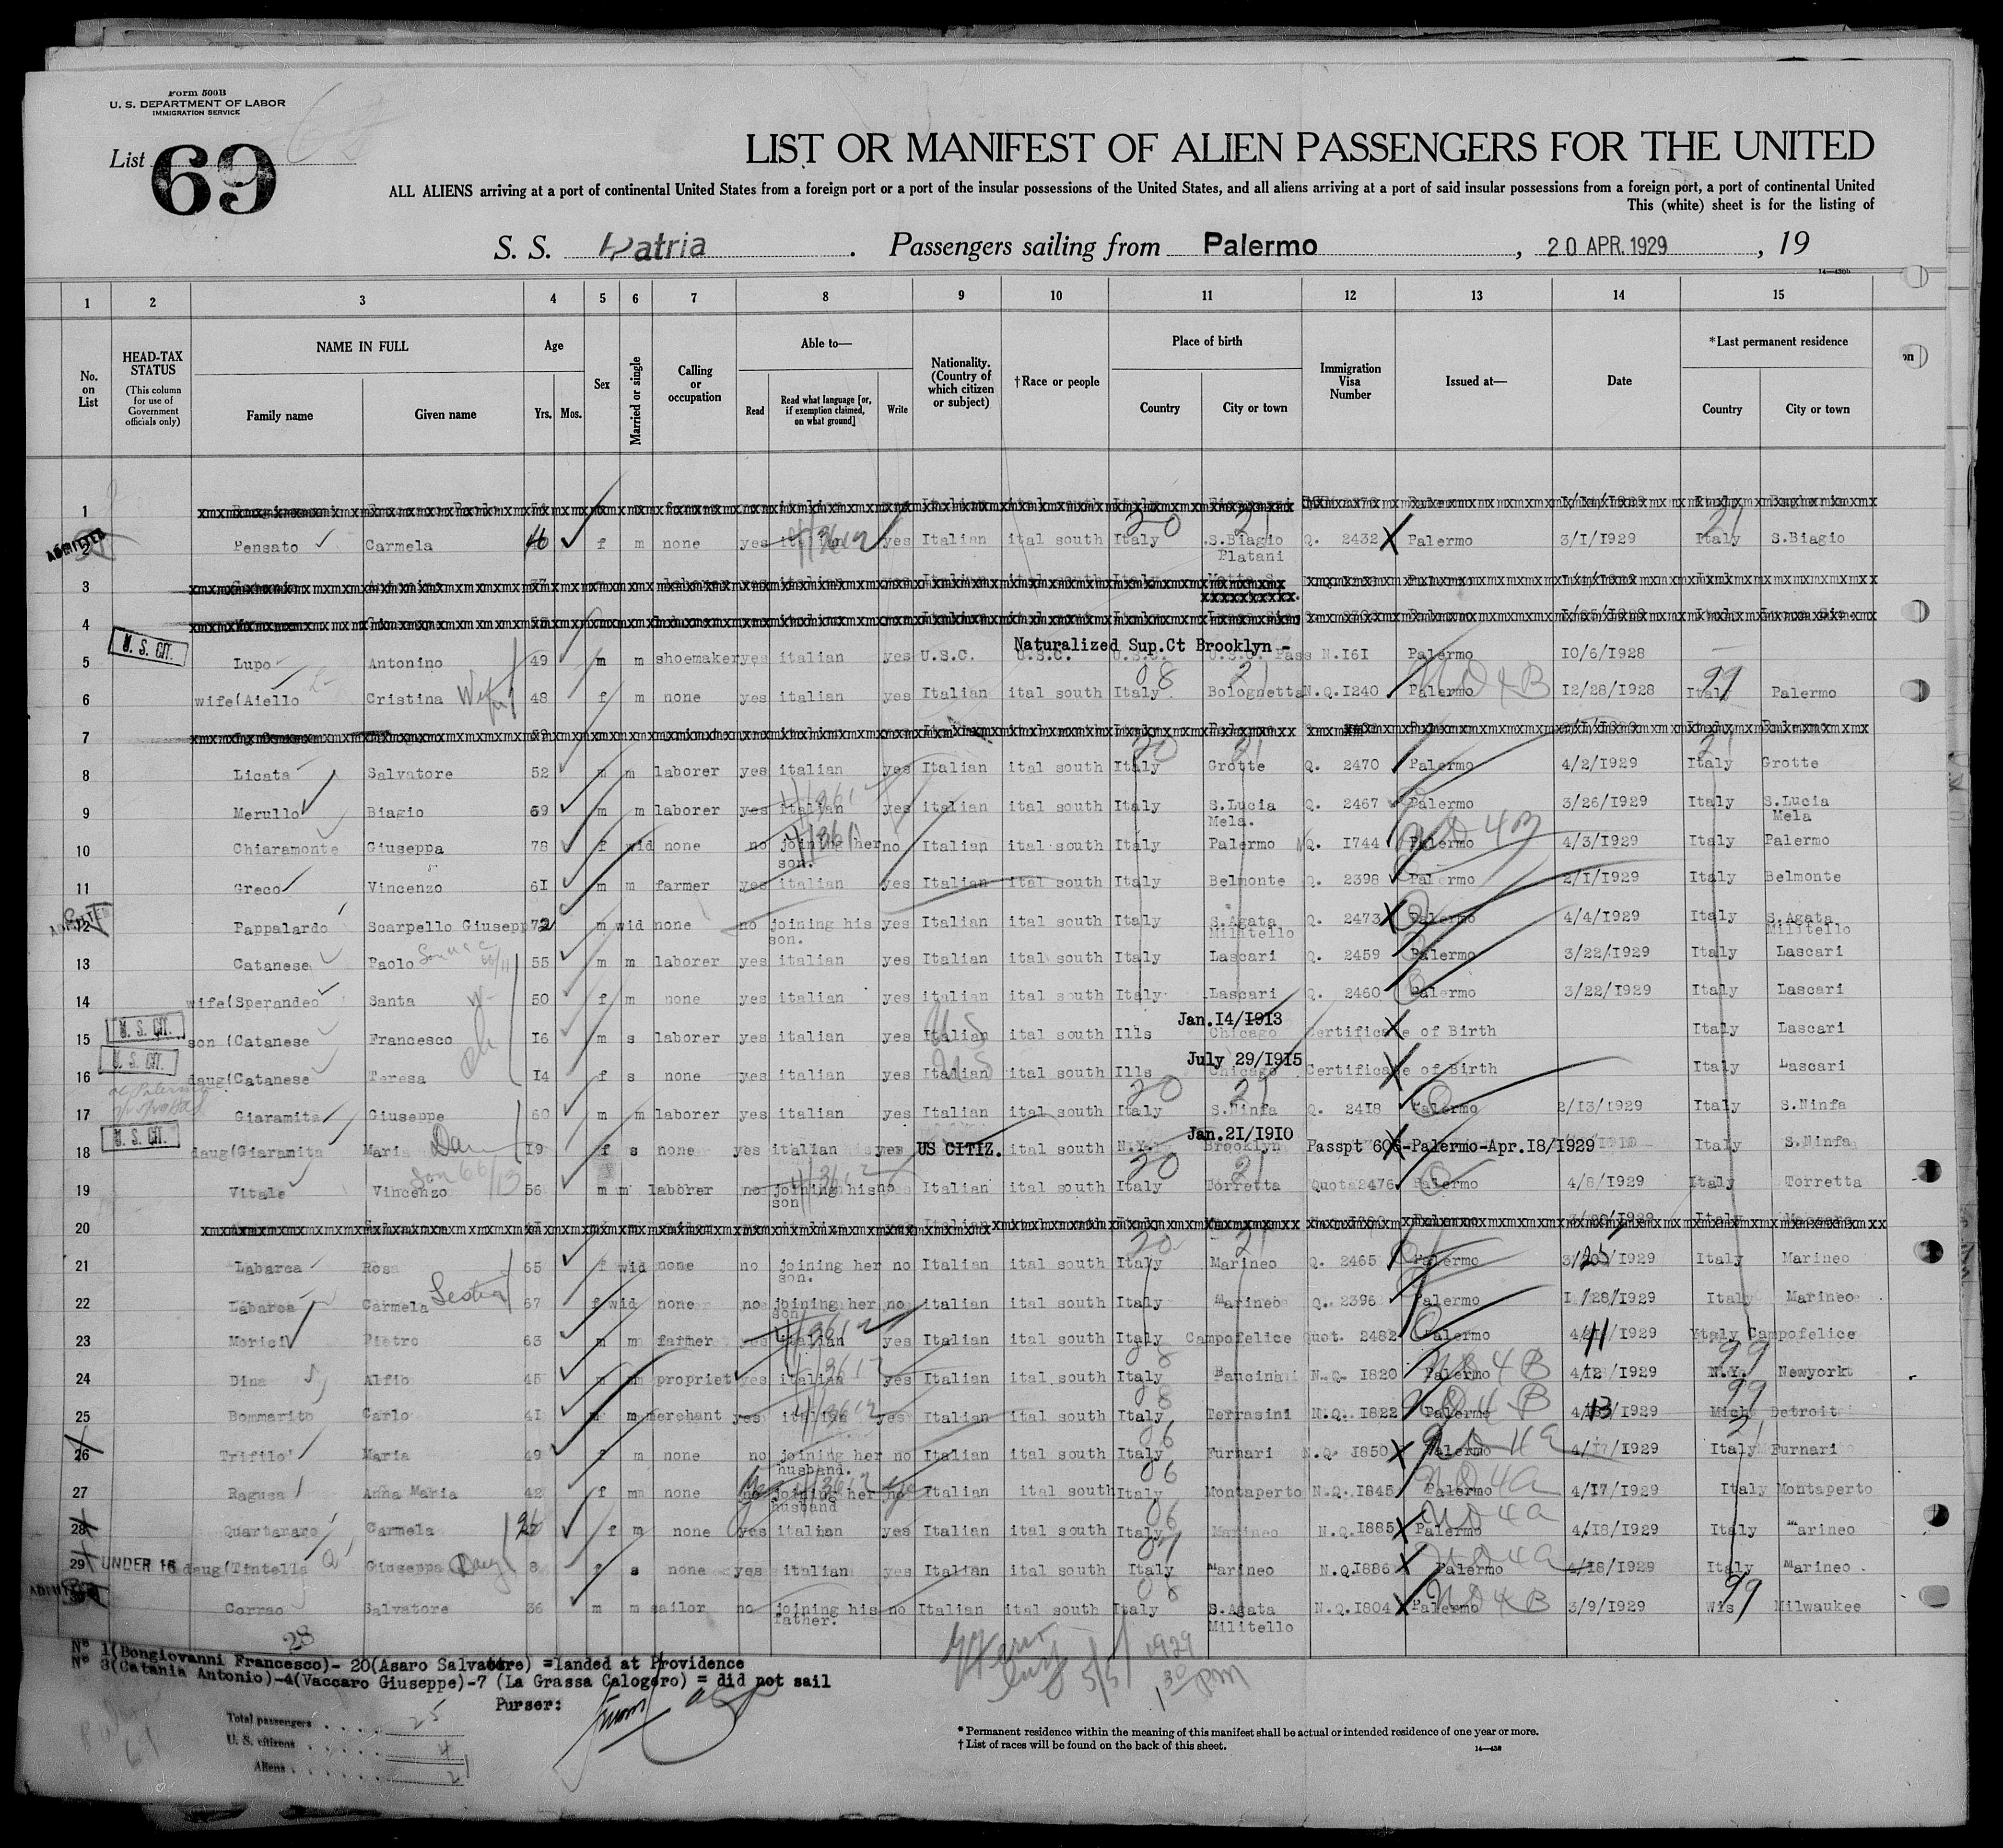 Form 500B
U. S. DEPARTMENT OF LABOR
IMMIGRATION SERVICE
List 69
LIST OR MANIFEST OF ALIEN PASSENGERS FOR THE UNITED
ALL ALIENS arriving at a port of continental United States from a foreign port or a port of the insular possessions of the United States, and all aliens arriving at a port of said insular possessions from a foreign port, a port of continental United
This (white) sheet is for the listing of
S. S. Patria . Passengers sailing from Palermo , 20 APR. 1929 , 19
14—430b
1 2 3 4 5 6 7 8 9 10 11 12 13 14 15
No. on List
HEAD-TAX STATUS (This column for use of Government officials only)
NAME IN FULL
Family name Given name
Age
Yrs. Mos.
Sex
Married or single
Calling or occupation
Able to—
Read Read what language [or, if exemption claimed, on what ground] Write
Nationality. (Country of which citizen or subject)
†Race or people
Place of birth
Country City or town
Immigration Visa Number
Issued at—
Date
*Last permanent residence
Country City or town
1
ADMITTED
2 Pensato Carmela 46 f m none yes italian yes Italian ital south Italy S.Biagio Platani Q. 2432 Palermo 3/1/1929 Italy S.Biagio
3
4
U. S. CIT.
Naturalized Sup.Ct Brooklyn -
5 Lupo Antonino 49 m m shoemaker yes italian yes U.S.C. U.S.C. U.S.C. U.S.C. Pass N.161 Palermo 10/6/1928
6 wife(Aiello Cristina Wife 48 f m none yes italian yes Italian ital south Italy Bolognetta N.Q.1240 Palermo 12/28/1928 Italy Palermo
7
8 Licata Salvatore 52 m m laborer yes italian yes Italian ital south Italy Grotte Q. 2470 Palermo 4/2/1929 Italy Grotte
9 Merullo Biagio 59 m m laborer yes italian yes italian ital south Italy S.Lucia Mela. Q. 2467 Palermo 3/26/1929 Italy S.Lucia Mela
10 Chiaramonte Giuseppa 78 f wid none no joining her son. no Italian ital south Italy Palermo NQ. 1744 Palermo 4/3/1929 Italy Palermo
11 Greco Vincenzo 61 m m farmer yes italian yes Italian ital south Italy Belmonte Q. 2398 Palermo 2/1/1929 Italy Belmonte
12 Pappalardo Scarpello Giusepp 72 m wid none no joining his son. yes Italian ital south Italy S.Agata Militello Q. 2473 Palermo 4/4/1929 Italy S.Agata Militello
13 Catanese Paolo 55 m m laborer yes italian yes Italian ital south Italy Lascari Q. 2459 Palermo 3/22/1929 Italy Lascari
14 wife(Sperandeo Santa 50 f m none yes italian yes italian ital south Italy Lascari Q. 2460 Palermo 3/22/1929 Italy Lascari
U. S. CIT.
Jan.14/1913
15 son (Catanese Francesco 16 m s laborer yes italian yes Italian ital south Ills Chicago Certificate of Birth Italy Lascari
U. S. CIT.
July 29/1915
16 daug(Catanese Teresa 14 f s none yes italian yes Italian ital south Ills Chicago Certificate of Birth Italy Lascari
17 Giaramita Giuseppe 60 m m laborer yes italian yes Italian ital south Italy S.Ninfa Q. 2418 Palermo 2/13/1929 Italy S.Ninfa
U. S. CIT.
Jan.21/1910
18 daug(Giaramita Maria Dau 19 f s none yes italian yes US CITIZ. ital south N.Y. Brooklyn Passpt 606-Palermo-Apr.18/1929 Italy S.Ninfa
19 Vitale Vincenzo 56 m m laborer no joining his son no Italian ital south Italy Torretta Quota 2476 Palermo 4/8/1929 Italy Torretta
20
21 Labarca Rosa 65 f wid none no joining her son. no Italian ital south Italy Marineo Q. 2465 Palermo 3/26/1929 Italy Marineo
22 Labarca Carmela 67 f wid none no joining her son no italian ital south Italy Marineo Q. 2396 Palermo 1/28/1929 Italy Marineo
23 Morici Pietro 63 m m farmer yes italian yes Italian ital south Italy Campofelice Quot. 2482 Palermo 4/11/1929 Italy Campofelice
24 Dina Alfio 45 m m propriet yes italian yes Italian ital south Italy Baucina N.Q. 1820 Palermo 4/12/1929 N.Y. Newyork
25 Bommarito Carlo 41 m m merchant yes italian yes Italian ital south Italy Terrasini N.Q. 1822 Palermo 4/13/1929 Mich Detroit
26 Trifilo' Maria 49 f m none no joining her husband. no Italian ital south Italy Furnari N.Q. 1850 Palermo 4/17/1929 Italy Furnari
27 Ragusa Anna Maria 42 f m none no joining her husband no Italian ital south Italy Montaperto N.Q.1845 Palermo 4/17/1929 Italy Montaperto
28 Quartararo Carmela 26 f m none yes italian yes Italian ital south Italy Marineo N.Q.1885 Palermo 4/18/1929 Italy Marineo
29 UNDER 16 daug(Tintella Giuseppa Daug 8 f s none yes italian yes Italian ital south Italy Marineo N.Q.1886 Palermo 4/18/1929 Italy Marineo .
Corrao Salvatore 36 m m sailor no joining his father. no Italian ital south Italy S.Agata Militello N.Q.1804 Palermo 3/9/1929 Wis Milwaukee
28
Nº 1(Bongiovanni Francesco)- 20(Asaro Salvatore) =landed at Providence
Nº 3(Catania Antonio)-4(Vaccaro Giuseppe)-7 (La Grassa Calogero) = did not sail
Purser:
Total passengers . . . . 25
U. S. citizens . . . . . 4
Aliens . . . . . . 21
5/5/1929
1 30 PM
* Permanent residence within the meaning of this manifest shall be actual or intended residence of one year or more.
† List of races will be found on the back of this sheet.
14—430